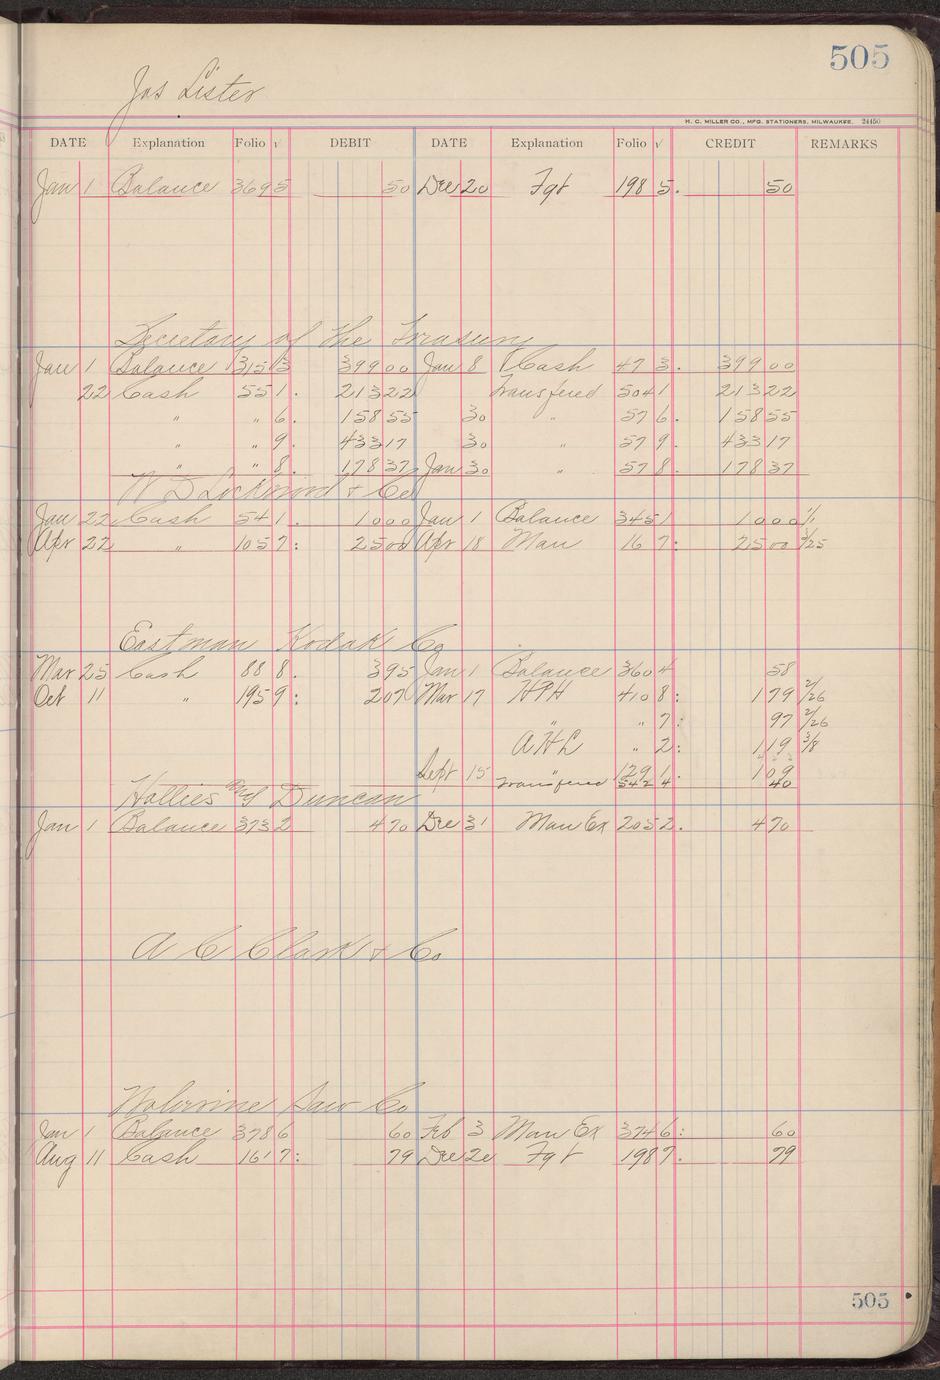 505
Jas Lister
H. C. MILLER CO., MFG. STATIONERS, MILWAUKEE. 24450
DATE Explanation Folio √ DEBIT DATE Explanation Folio √ CREDIT REMARKS
Jan 1 Balance 369 5 50 Dec 20 Fgt 198 5. 50
Secretary of the Treasury
Jan 1 Balance 315 3 399 00 Jan 8 Cash 47 3. 399 00
22 Cash 55 1. 213 22 Transfered 504 1 213 22
" " 6. 158 55 30 " 57 6. 158 55
" " 9. 433 17 30 " 57 9. 433 17
" " 8. 178 37 Jan 30 " 57 8. 178 37
W D Lockwood & Co
Jan 22 Cash 54 1. 10 00 Jan 1 Balance 345 1 10 00
Apr 22 " 105 7: 25 00 Apr 18 Man 16 7: 25 00 3/25
Eastman Kodak Co
Mar 25 Cash 88 8. 3 95 Jan 1 Balance 360 4 58
Oct 11 " 195 9: 2 07 Mar 17 HPH 410 8: 1 79 2/26
" " 7: 97 2/26
AHL " 2: 1 19 3/8
Sept 15 " 129 1. 1 09
Transfered 542 4 40
Hollies and Duncan
Jan 1 Balance 373 2 4 70 Dec 31 Man Ex 205 2. 4 70
A C Clark & Co
Wolverine Saw Co
Jan 1 Balance 378 6 60 Feb 3 Man Ex 374 6: 60
Aug 11 Cash 161 7: 79 Dec 20 Fgt 198 7. 79
505